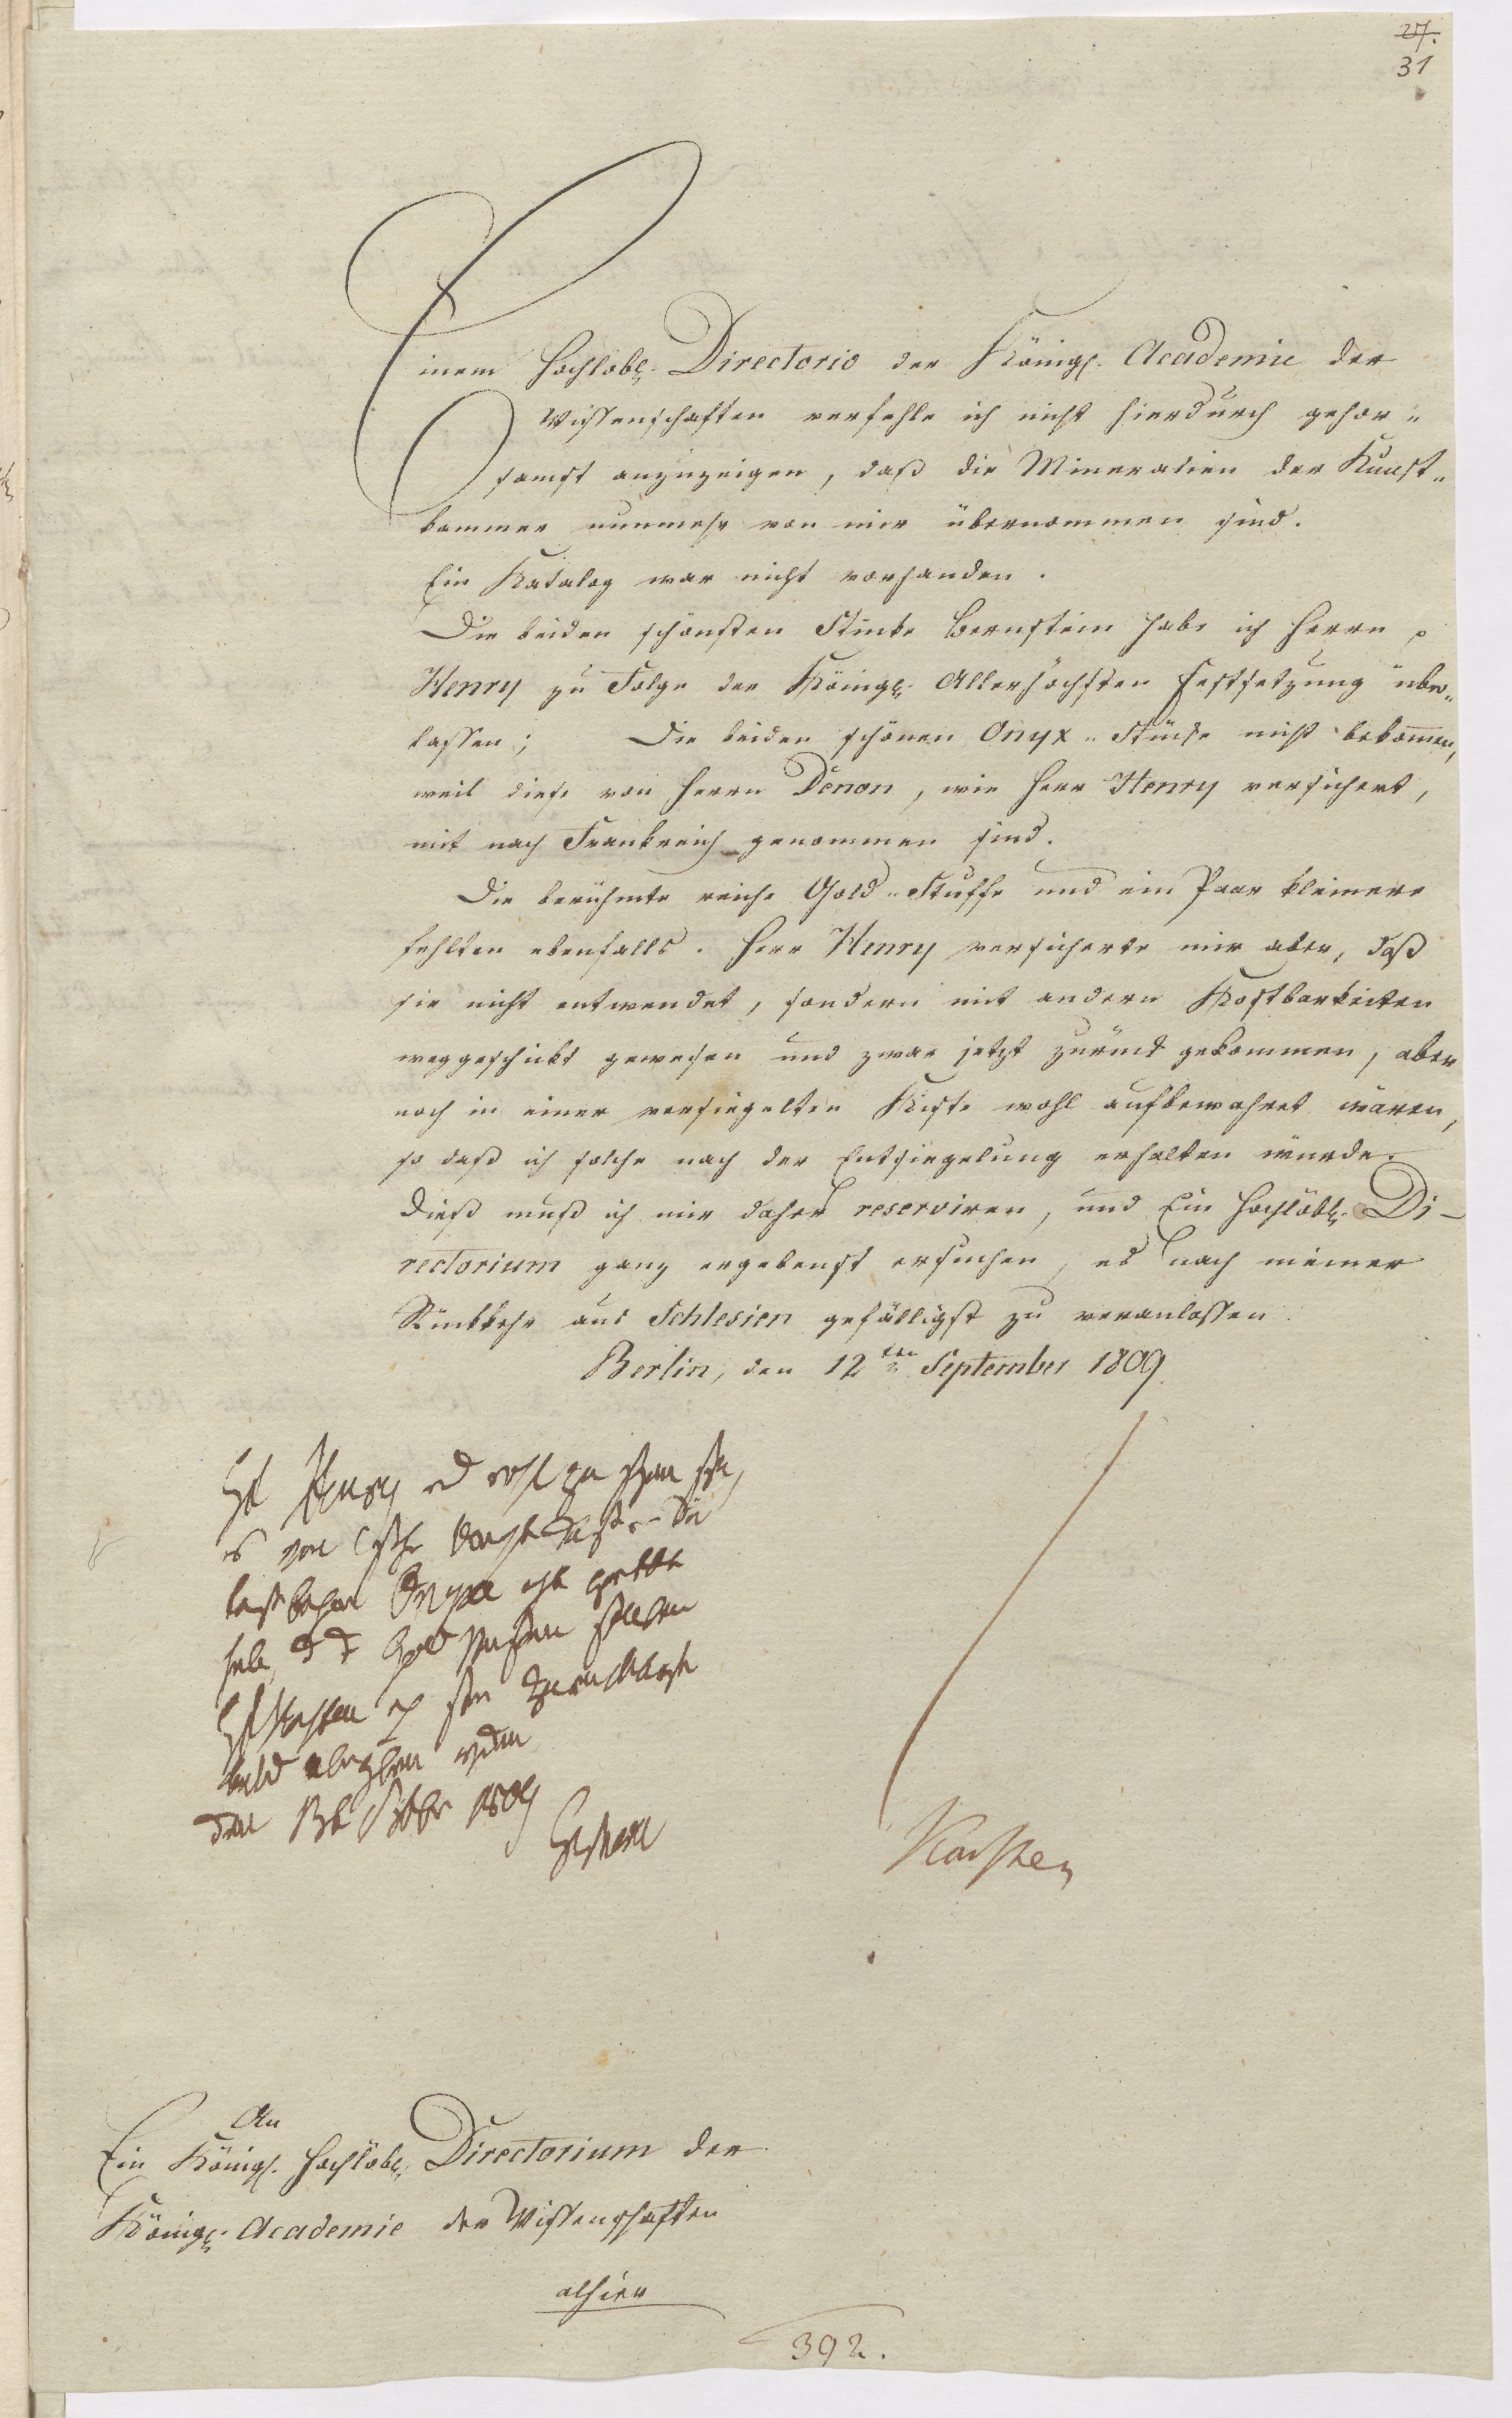 27.
31
Einem Hochlöbl. Directorio der Königl. Academie der
Wissenschaften verfehle ich nicht hierdurch gehor„
samst anzuzeigen, daß die Mineralien der Kunst„
kammer nunmehr von mir übernommen sind.
Ein Katalog war nicht vorhanden.
Die beiden schönsten Stücke Bernstein habe ich Herrn p
Henry zu Folge der Königl. Allerhöchsten Festsetzung über„
lassen; Die beiden schönen Onyx„Stücke nicht bekommen,
weil diese von Herrn Denon, wie Herr Henry versichert,
mit nach Frankreich genommen sind.
Die berühmte reiche Gold„Stuffe und ein Paar kleinere
fehlten ebenfalls. Herr Henry versicherte mir aber, daß
sie nicht entwendet, sondern mit andern Kostbarkeiten
weggeschickt gewesen und zwar jetzt zurück gekommen, aber
noch in einer versiegelten Kiste wohl aufbewahret wären,
so daß ich solche nach der Entsiegelung erhalten würde.
Dieß muß ich mir daher reserviren, und Ein Hochlöbl. Di-
rectorium ganz ergebenst ersuchen, es nach meiner
Rückkehr aus Schlesien gefälligst zu veranlassen.
Berlin, den 12ten September 1809.
H Henry
es von
Onyxe
hab
Gold stufen
H Karsten
bald
den 13t 1809
Karsten
An
Ein Königl. Hochlöbl. Directorium der
Königl. Academie der Wissenschaften
alhier
392.